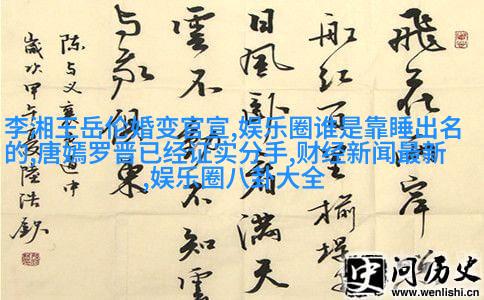 飛花兩岸
船紅百里榆堤
日風卧看滿天
雲不動不知雲
与我俱東
陈与义襄邑道中
歲次甲午夏陸浩
李湘王岳伦婚变官宣,娱乐圈谁是靠睡出名
的,唐嫣罗晋已经证实分手,财经新闻最新
,娱乐圈八卦大全
史问历史
www.wenlishi.cn